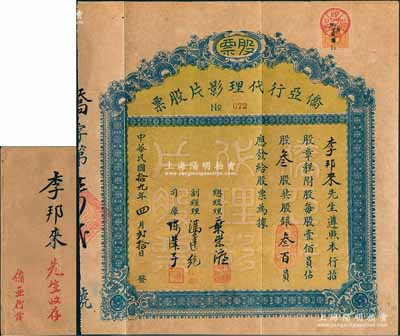 股票
僑亞行代理影片股票
No 072
李邦來先生遵照本行招
股章程附股每股壹佰員佔
股叁股共股銀叁百員
應發給股票為據
總經理
副經理
司庫
中華民國拾九年四月拾日發
僑字第
號
李邦來先生收存
僑亞行
上海陽明拍卖